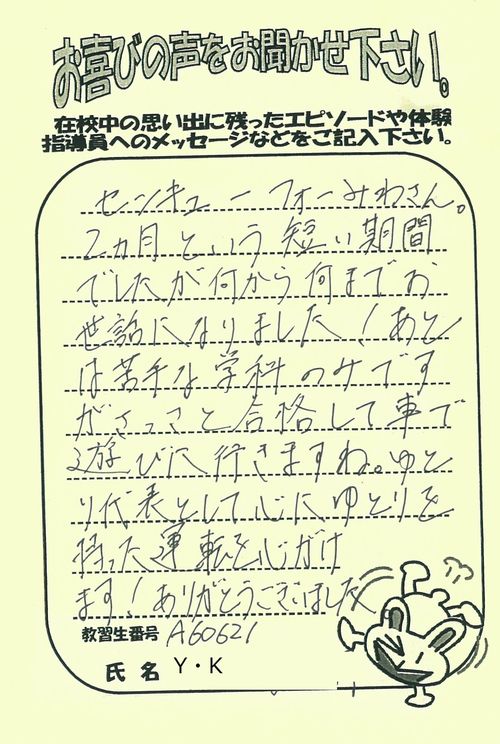 お喜びの声をお聞かせ下さい。
在校中の思い出に残ったエピソードや体験
指導員へのメッセージなどをご記入下さい。
センキューフォーみわさん。
2ヵ月という短い期間
でしたが何から何までお
世話になりました！あと
は苦手な学科のみです
がさっさと合格して車で
遊びに行きますね。ゆと
り代表として心にゆとりを
持った運転を心がけ
ます！ありがとうございました
教習生番号 A60621
氏名 Y・K